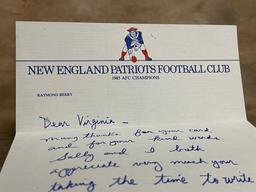 NEW ENGLAND PATRIOTS FOOTBALL CLUB
1985 AFC CHAMPIONS
RAYMOND BERRY
Dear Virginia -
Many thanks for your card
and for your kind words
Sally and I both
appreciate very much your
taking the time to write